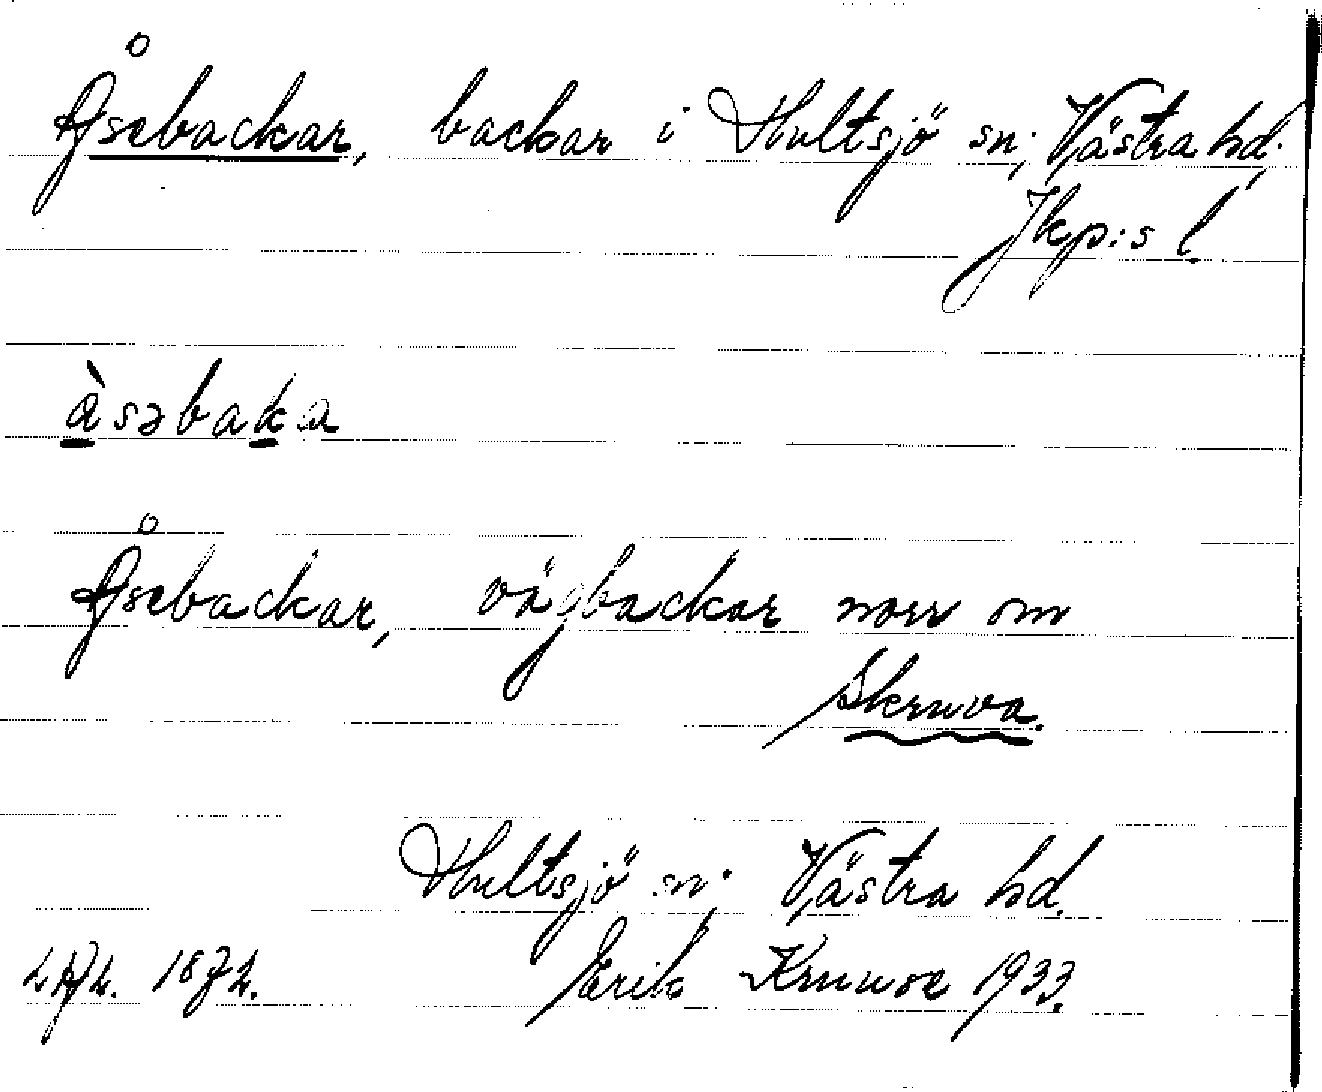 Åsebackar, backar i Hultsjö sn; Västra hd;
Jkp:s l.
àsəbaka
Åsebackar, vägbackar norr om
Skruva.
Hultsjö sn; Västra hd.
1872. Erik 1933.